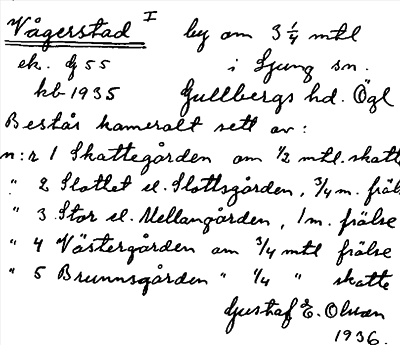 Vågerstad I by om 3 1/4 mtl
ek. G 55 i Ljung sn.
kb 1935 Gullbergs hd. Ögl
Består kameralt sett av:
n:r 1 Skattegården om 1/2 mtl. skatt
" 2 Slottet el. Slottsgården, 3/4 m. fräl
" 3 Stor el. Mellangården, 1 m. frälse
" 4 Västergården om 3/4 mtl frälse
" 5 Brunnsgården " 1/4 " skatte
Gustaf E. Olsson
1936.